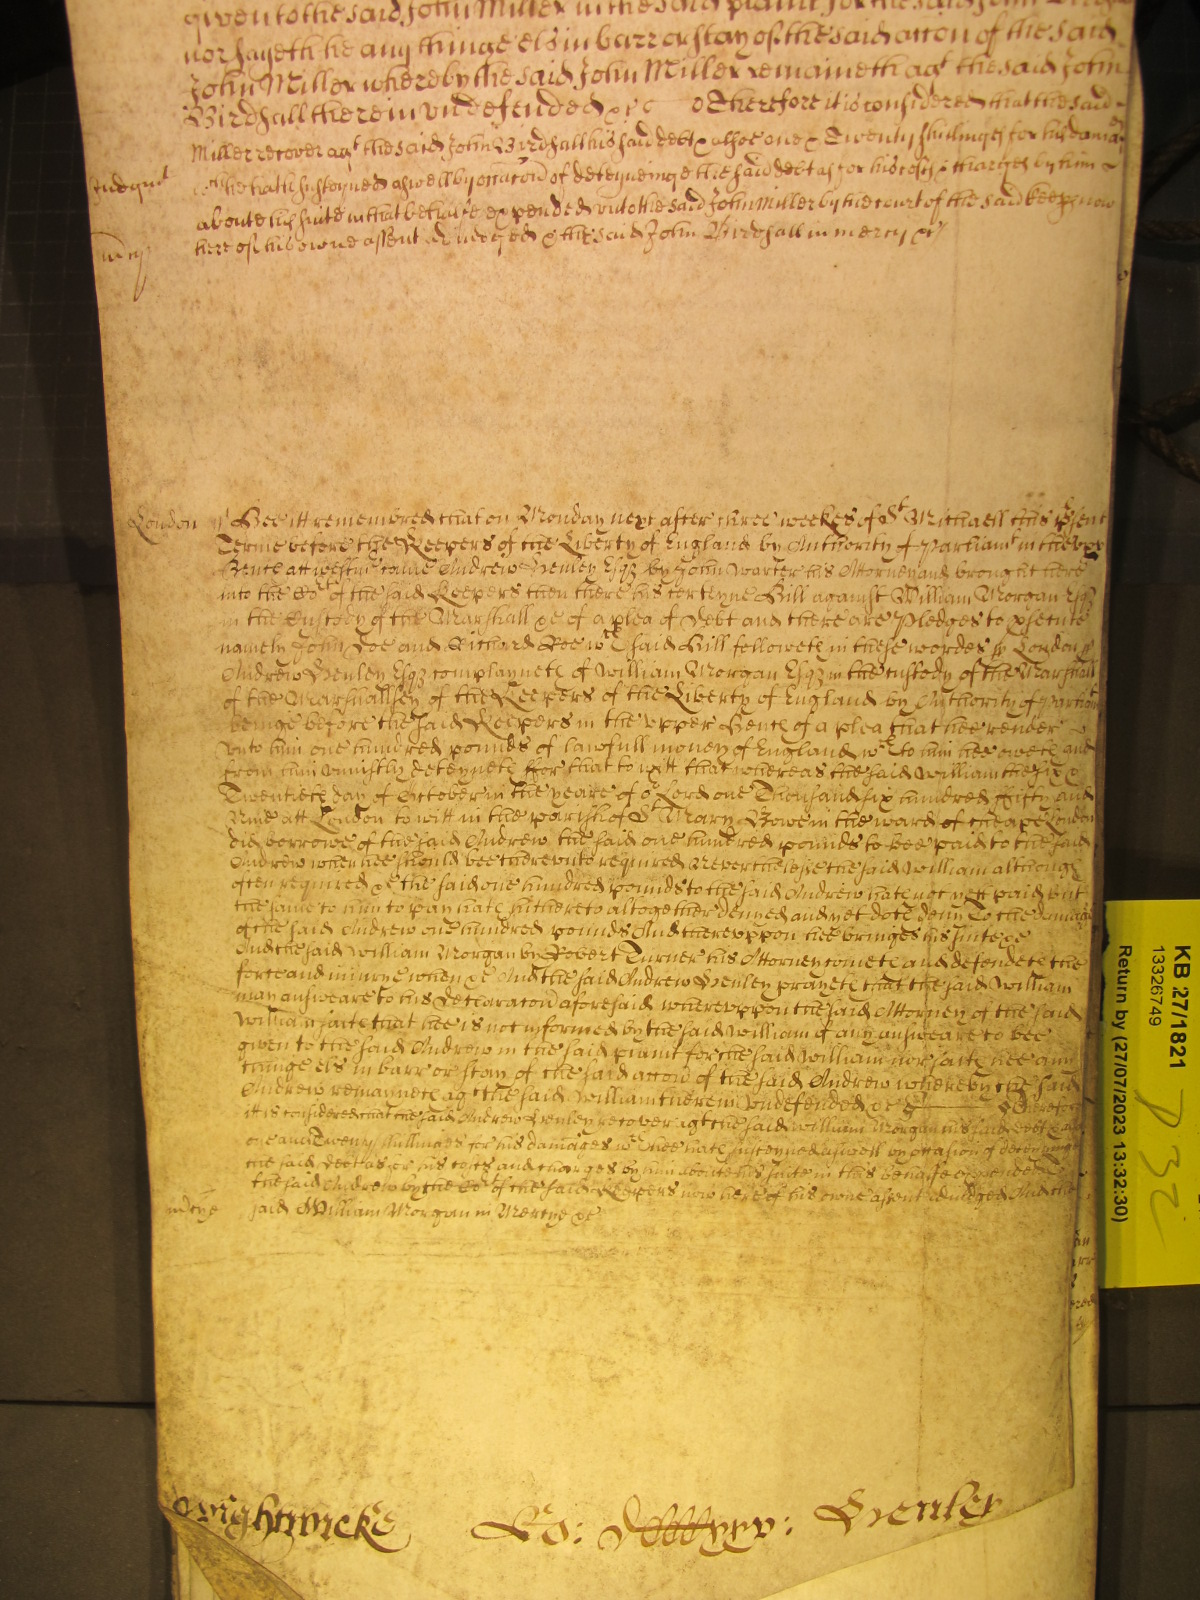 given to the said John Miller in the said plaint for the said John
nor sayeth he any thinge els in barr or stay of the said accon of the said
John Miller whereby the said John Miller remaineth agt the said John
Birdsall therein undefended &c Therefore it is considered that the said
Miller recover agt the said John Birdsall his said debt & alsoe one & Twenty shillings for his dama
he hath susteyned aswell by occacon of deteyneinge the said debt as for his costs & charges by him
about his suite in that behalfe expended unto the said John Miller by the court of the said keeps now
here of his owne assent adjudged & the said John Birdsall in mercy &c
Judgmt
mcy
London ss Bee itt remembred that on Monday next after three weekes of St Michaell this psent
Terme before the Keepers of the Liberty of England by Authority of Parliamt in the upp
Bench att Westmr came Andrew Henley Esqz by John Warter his Attorney and brought here
into the Cort of the said Keepers then there his certeyne Bill against William Morgan Esqz
in the Custody of the Marshall &c of a plea of Debt and there are Pledges to psecute
namely John Doe and Richard Roe wch said Bill followeth in these wordes ss London ss
Andrew Henley Esqz complayneth of William Morgan Esqz in the custody of the Marshall
of the Marshallsey of the Keepers of the Liberty of England by Authority of Parliamt
beinge before the said Keepers in the upper Bench of a plea that hee render
unto him one hundred pounds of lawfull money of England wch to him hee oweth and
from him uniustly deteyneth ffor that to witt that whereas the said William the six &
Twentieth day of October in the yeare of or Lord one Thousand six hundred ffifty and
Nine att London to witt in the parish of St Mary Bowe in the ward of Cheape London
did borrowe of the said Andrew the said one hundred pounds to bee paid to the said
Andrew when hee should bee thereunto required Neverthelesse the said William although
often required &c the said one hundred pounds to the said Andrew hath not yett paid but
the same to him to pay hath hithereto altogether denyed and yet doth deny To the damage
of the said Andrew one hundred pounds And thereuppon hee bringes his suite &c
And the said William Morgan by Robert Turner his Attorney cometh and defendeth the
force and iniurye when &c And the said Andrew Henley prayeth that the said William
may answeare to his Declaracon aforesaid whereuppon the said Attorney of the said
William saith that hee is not informed by the said William of any answeare to bee
given to the said Andrew in the said plaint for the said William nor saith hee any
thinge els in barr or stay of the said accon of the said Andrew whereby the said
Andrew remayneth agt the said William therein undefended &c Therefore
itt is considered that the said Andrew Henley recover agt the said William Morgan his said debt &
one and Twenty shillinges for his damages wch hee hath susteyned aswell by occasion of deteyninge
the said Debt as for his costs and charges by him aboute his suite in this behalfe expended
the said Andrew by the Cort of the said Keepers now here of his owne assent adiudged And the
said William Morgan in Mercye &c
mcye
Wightwicke
Ro:
Henley
KB 27/1821
13326749
Return by (27/07/2023 13:32:30)
P32